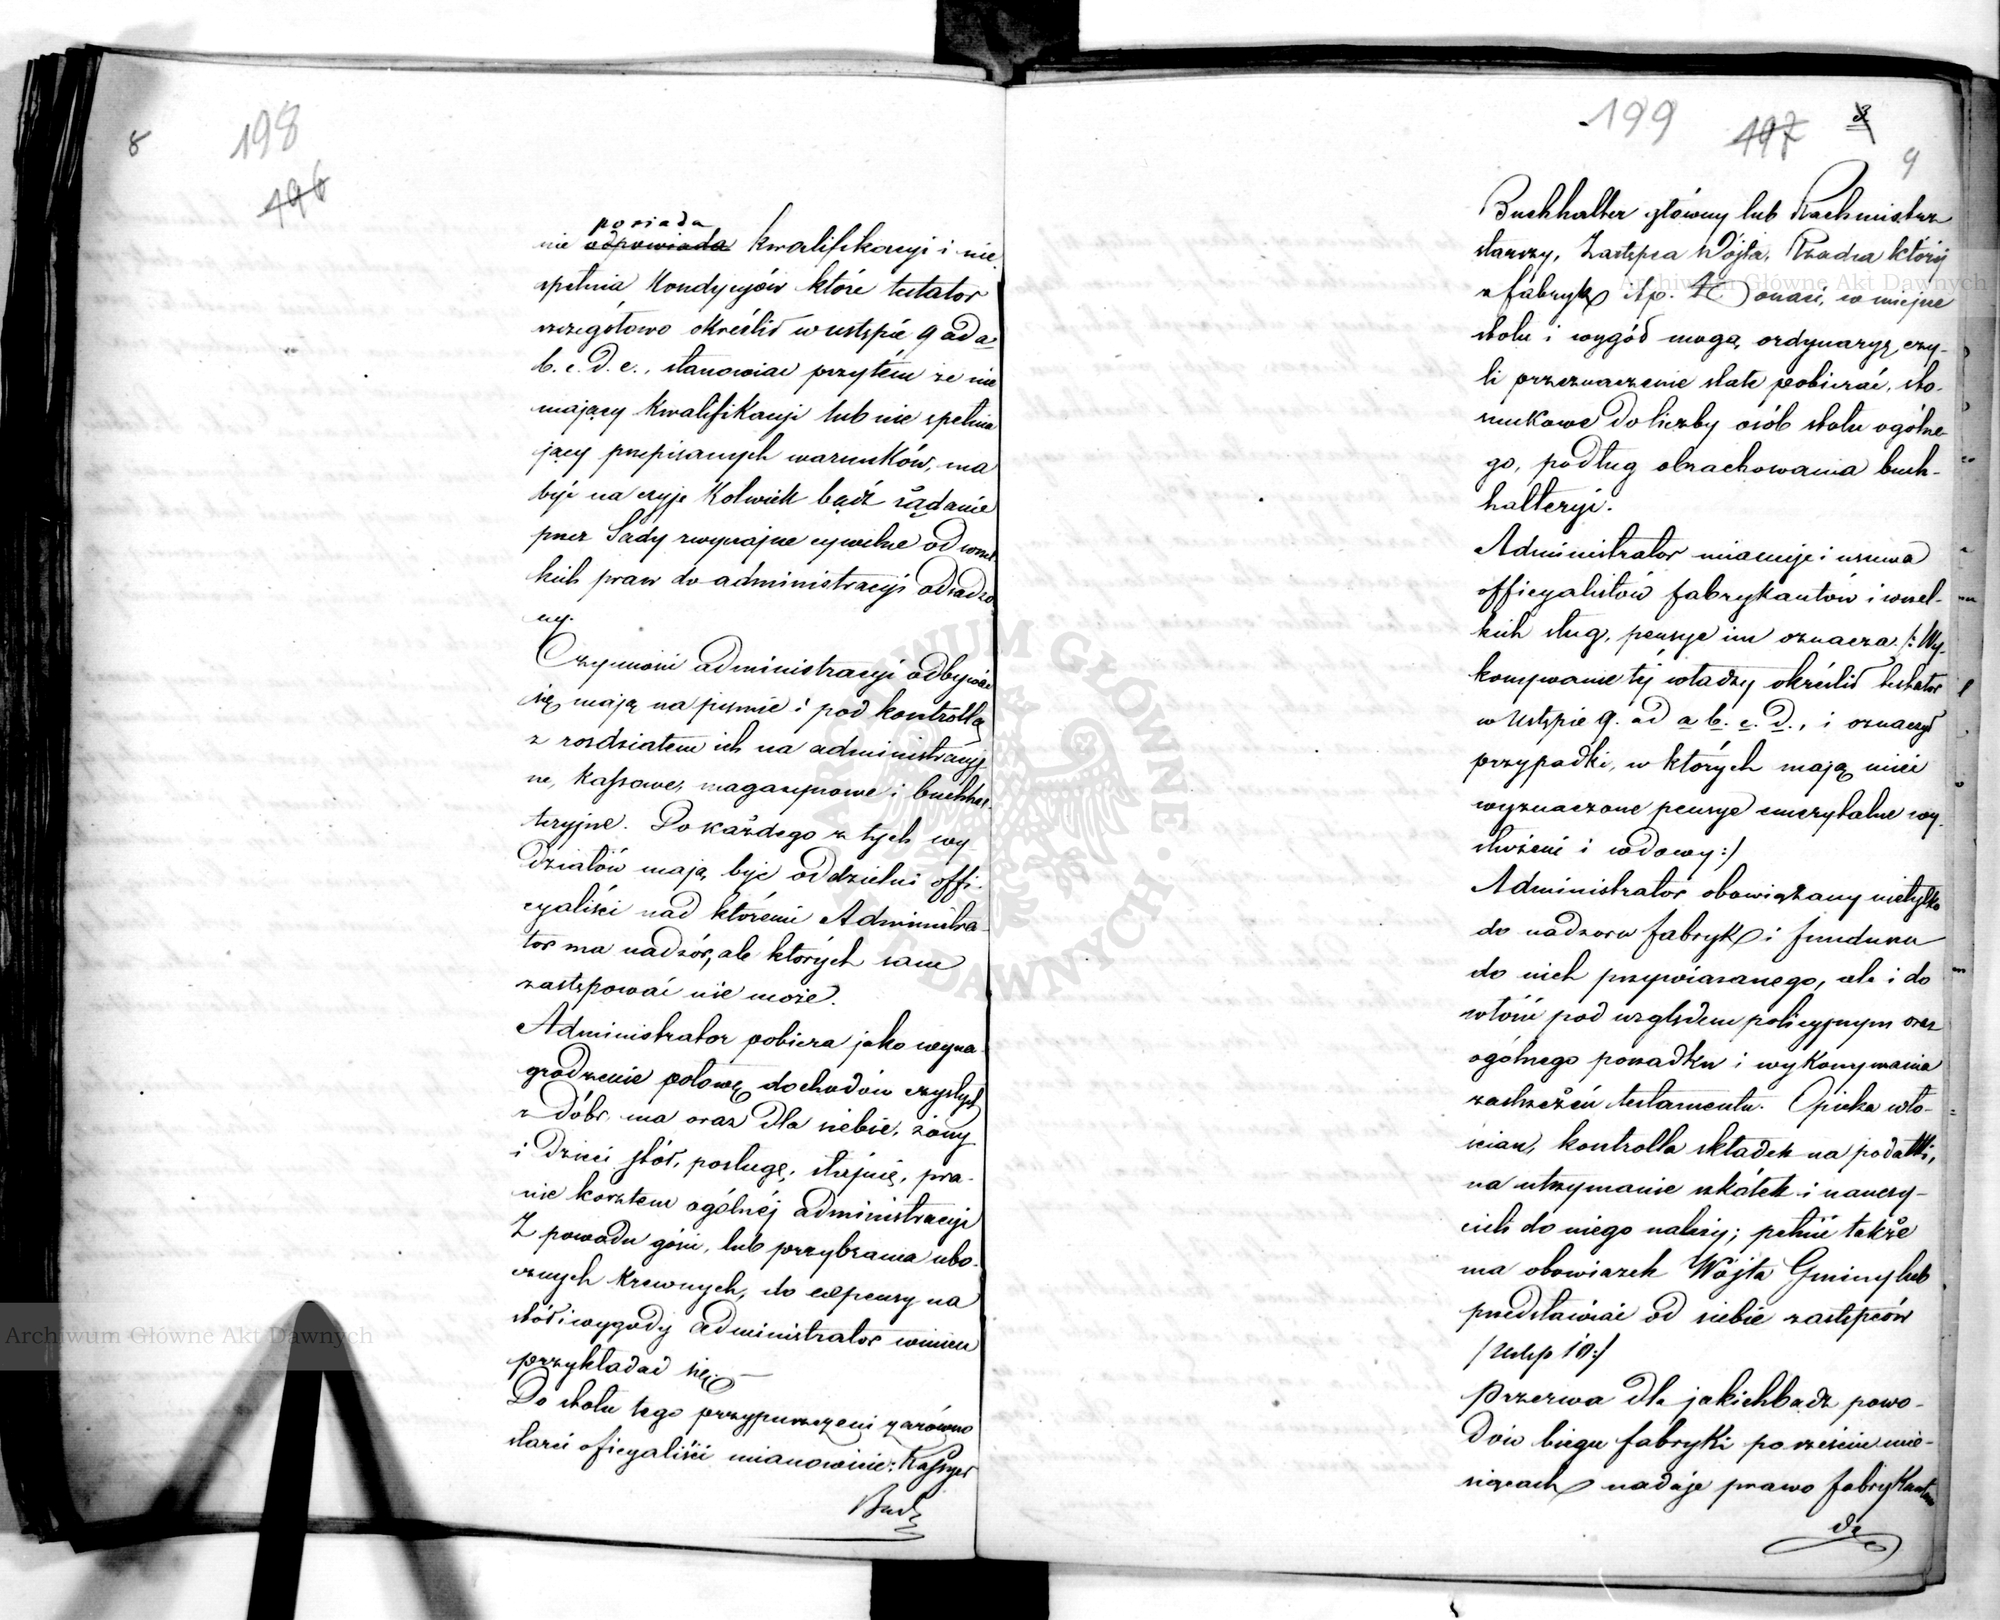 8
198
196
posiada
nie odpowiada kwalifikacyi i nie
spełnia Kondycyów które testator
szczegółowo określił w ustępie 9 ad a
b. c. d. e., stanowiąc przytém że nie
mający kwalifikacyi lub nie spełnia
jący przepisanych warunków, ma
być na czyje Kolwiek bądź żądanie
przez Sądy zwyczajne cywilne od wszel
kich praw do administracyi odsądzo
ny.
Czynności administracyi odbywać
się mają na piśmie i pod kontrollą
z rozdziałem ich na administracyj
ne, Kassowe, magazynowe i buchhal
teryjne. Do każdego z tych wy
działów mają być oddzielni offi-
cyaliści nad któremi Administra
tor ma nadzór, ale których sam
zastępować nie może.
Administrator pobiera jako wyna-
grodzenie połowę dochodów czystych
z dóbr, ma oraz dla siebie, żony
i dzieci stół, posługę, stajnię, pra-
nie kosztem ogólnéj administracyi
Z powodu gości, lub przybrania ubo-
cznych Krewnych, do expensy na
stół i wygody administrator winien
przykładać się.
Do stołu tego przypuszczeni zarówno
starsi oficyaliści mianowicie: Kassyer
Buch
199
197
9
Buchhalter główny lub Rachmistrz
starszy, Zastępca Wójta, Rządca który
z fabryk Np. Żonaci, w miejsce
stołu i wygód mogą ordynaryę, czy-
li przeznaczenie stałe pobierać, sto-
sunkowe do liczby osób stołu ogólne-
go, podług obrachowania buch-
halteryi.
Administrator mianuje i usuwa
officyalistów fabrykantów i wszel-
kich sług, pensye im oznacza. /: Wy-
konywanie téj władzy określił testator
w Ustępie 9. ad a b. c. d., i oznaczył
przypadki, w których mają mieć
wyznaczone pensye emerytalne wy-
służeni i wdowy :/
Administrator obowiązany nietylko
do nadzoru fabryk i funduszu
do nich przywiązanego, ale i do
włości pod względem policyjnym oraz
ogólnego porządku i wykonywania
zastrzeżeń testamentu. Opieka wło-
ścian, kontrolla składek na podatki,
na utrzymanie szkółek i nauczy-
cieli do niego należy; pełnić także
ma obowiązek Wójta Gminy lub
przedstawiać od siebie zastępców
/Ustęp 10:/
Przerwa dla jakichbądź powo-
dów biegu fabryki po sześciu mie-
siącach nadaje prawo fabrykantom
do
Archiwum Główne Akt Dawnych
Archiwum Główne Akt Dawnych
ARCHIWUM GŁÓWNE AKT DAWNYCH